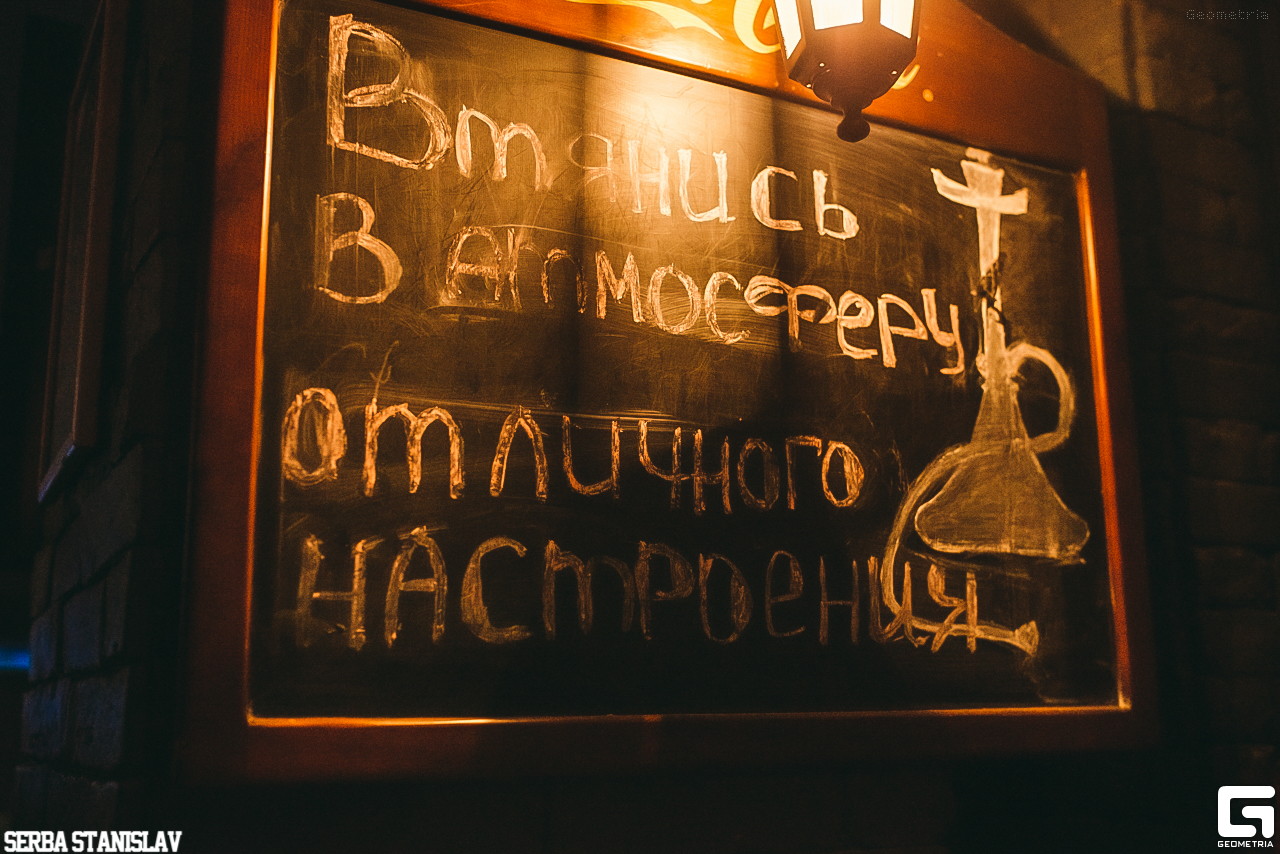 Geometria
Втянись
В атмосферу
отличного
настроения
SERBA STANISLAV
G
GEOMETRIA